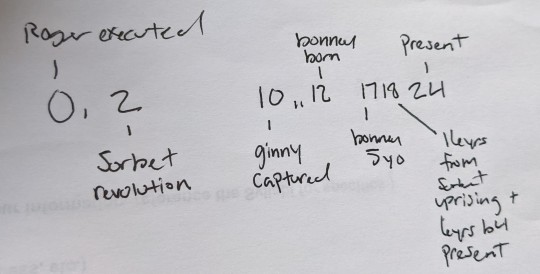 Roger executed
bonney
born
Present
0, 2
10,, 12
1718 24
Sorbet
revolution
ginny
captured
bonney
5yo
16yrs
from
Sorbet
uprising +
6yrs b4
present